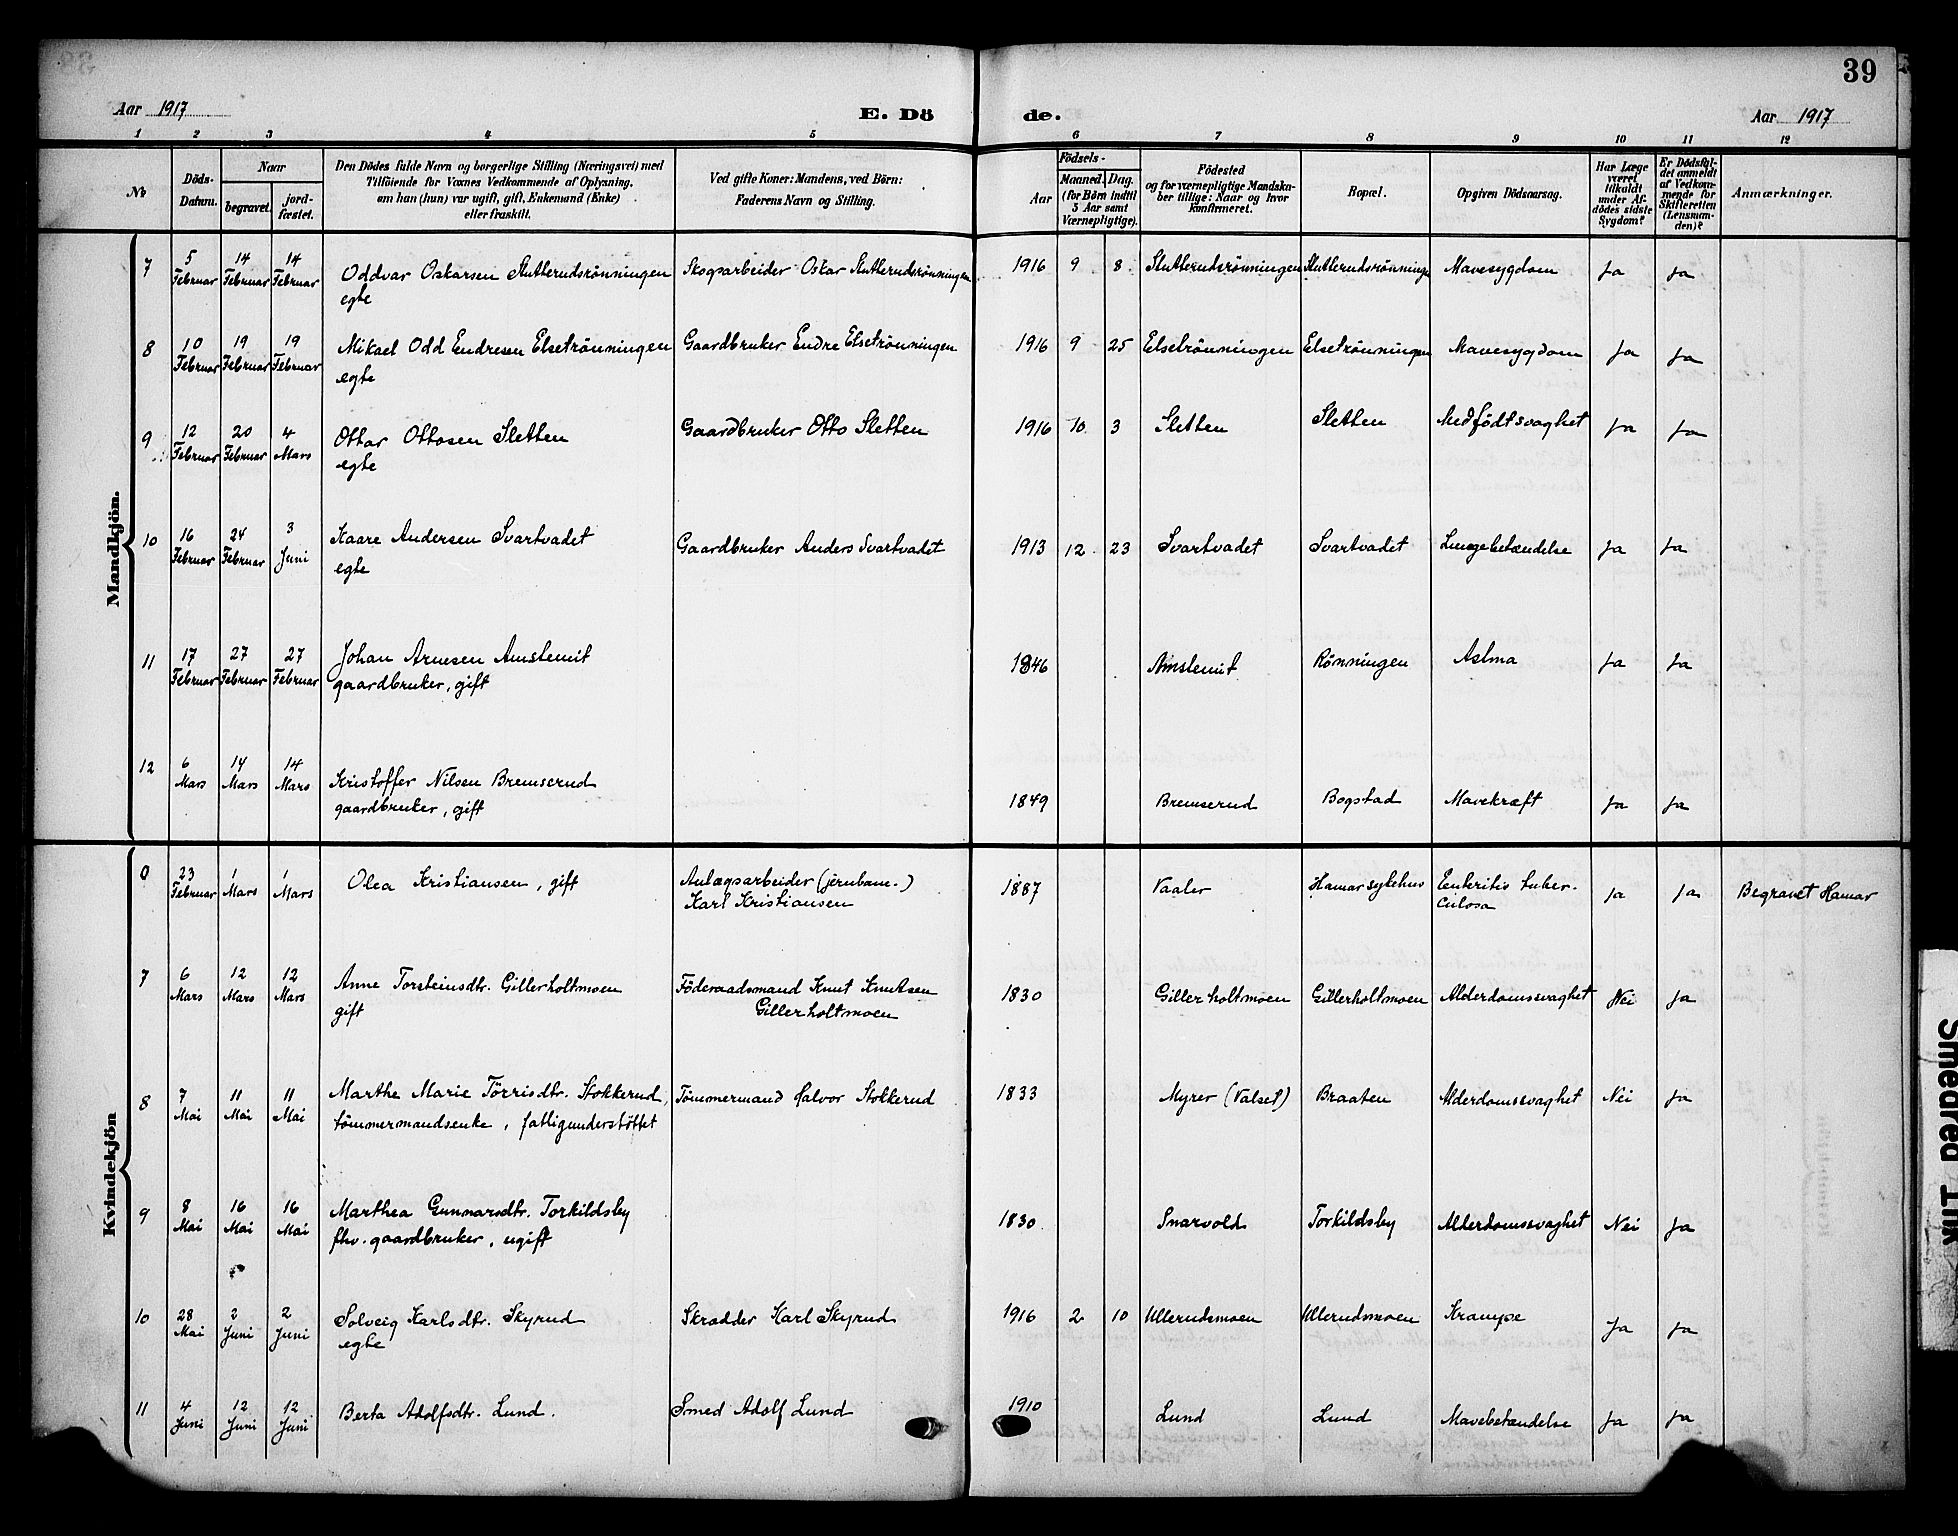 39
Aar 1917
E. Dö
de.
Aar 1917
1 2 3 4 5 6 7 8 9 10 11 12
№
Döds-
Datum.
Naar
begravet.
jord-
fæstet.
Den Dödes fulde Navn og borgerlige Stilling (Næringsvei) med
Tilföiende for Voxnes Vedkommende af Oplysning,
om han (hun) var ugift, gift, Enkemand (Enke)
eller fraskilt.
Ved gifte Koner: Mandens, ved Börn:
Faderens Navn og Stilling.
Födsels-
Aar
Maaned.
Dag.
(for Börn indtil
5 Aar samt
Værnepligtige).
Födested
og for værnepligtige Mandska-
ber tillige: Naar og hvor
konfirmeret.
Bopæl.
Opgiven Dödsaarsag.
Har Læge
været
tilkaldt
under Af-
dödes sidste
Sygdom?
Er Dödsfal-
det anmeldt
af Vedkom-
mende for
Skifteretten
(Lensman-
den)?
Anmærkninger.
Mandkjön.
7 5 Februar 14 Februar 14 Februar Oddvar Oskarsen Slutterudsrönningen Skogsarbeider Oskar Slutterudsrönningen 1916 9 8 Slutterudsrönningen Slutterudsrönninge Mavesygdom Ja Ja
egte
8 10 Februar 19 Februar 19 Februar Mikael Odd Endresen Elsetrönningen Gaardbruker Endre Elsetrönningen 1916 9 25 Elsetrönningen Elsetrönningen Mavesygdom Ja Ja
egte
9 12 Februar 20 Februar 4 Mars Ottar Ottosen Sletten Gaardbruker Otto Sletten 1916 10 3 Sletten Sletten Medfödt svaghet Ja Ja
egte
10 16 Februar 24 Februar 3 Juni Kaare Andersen Svartvadet Gaardbruker Anders Svartvadet 1913 12 23 Svartvadet Svartvadet Lungebetændelse Ja Ja
egte
11 17 Februar 27 Februar 27 Februar Johan Arnesen 1846 Rönningen Astma Ja Ja
gaardbruker, gift
12 6 Mars 14 Mars 14 Mars Kristoffer Nilsen Bremserud 1849 Bremserud Bogstad Mavekræft Ja Ja
gaardbruker, gift
Kvindekjön
23 Februar 1 Mars 1 Mars Olea Kristiansen, gift Anlægsarbeider (jernbane.) 1887 Vaaler Hamar sykehus Enteritis tuber- Ja Ja Begravet Hamar
Karl Kristiansen culosa
7 6 Mars 12 Mars 12 Mars Anne Torsteinsdtr. Gillerholtmoen Föderaadsmand Knut Knutsen 1830 Gillerholtmoen Gillerholtmoen Alderdomssvaghet Nei Ja
gift Gillerholtmoen
8 7 Mai 11 Mai 11 Mai Marthe Marie Törrisdtr. Stokkerud, Tömmermand Halvor Stokkerud 1833 Myrer (Valset) Braaten Alderdomssvaghet Nei Ja
tömmermandsenke, fattigunderstöttet
9 8 Mai 16 Mai 16 Mai Marthea Gunnarsdtr. Torkildsby 1830 Snarvold Torkildsby Alderdomssvaghet Nei Ja
fhv. gaardbruker, ugift
10 28 Mai 2 Juni 2 Juni Solveig Karlsdtr. Skyrud Skrædder Karl Skyrud 1916 2 10 Ullerudsmoen Ullerudsmoen Krampe Ja Ja
egte
11 4 Juni 12 Juni 12 Juni Berta Adolfsdtr. Lund. Smed Adolf Lund 1910 Lund Lund Mavebetændelse Ja Ja